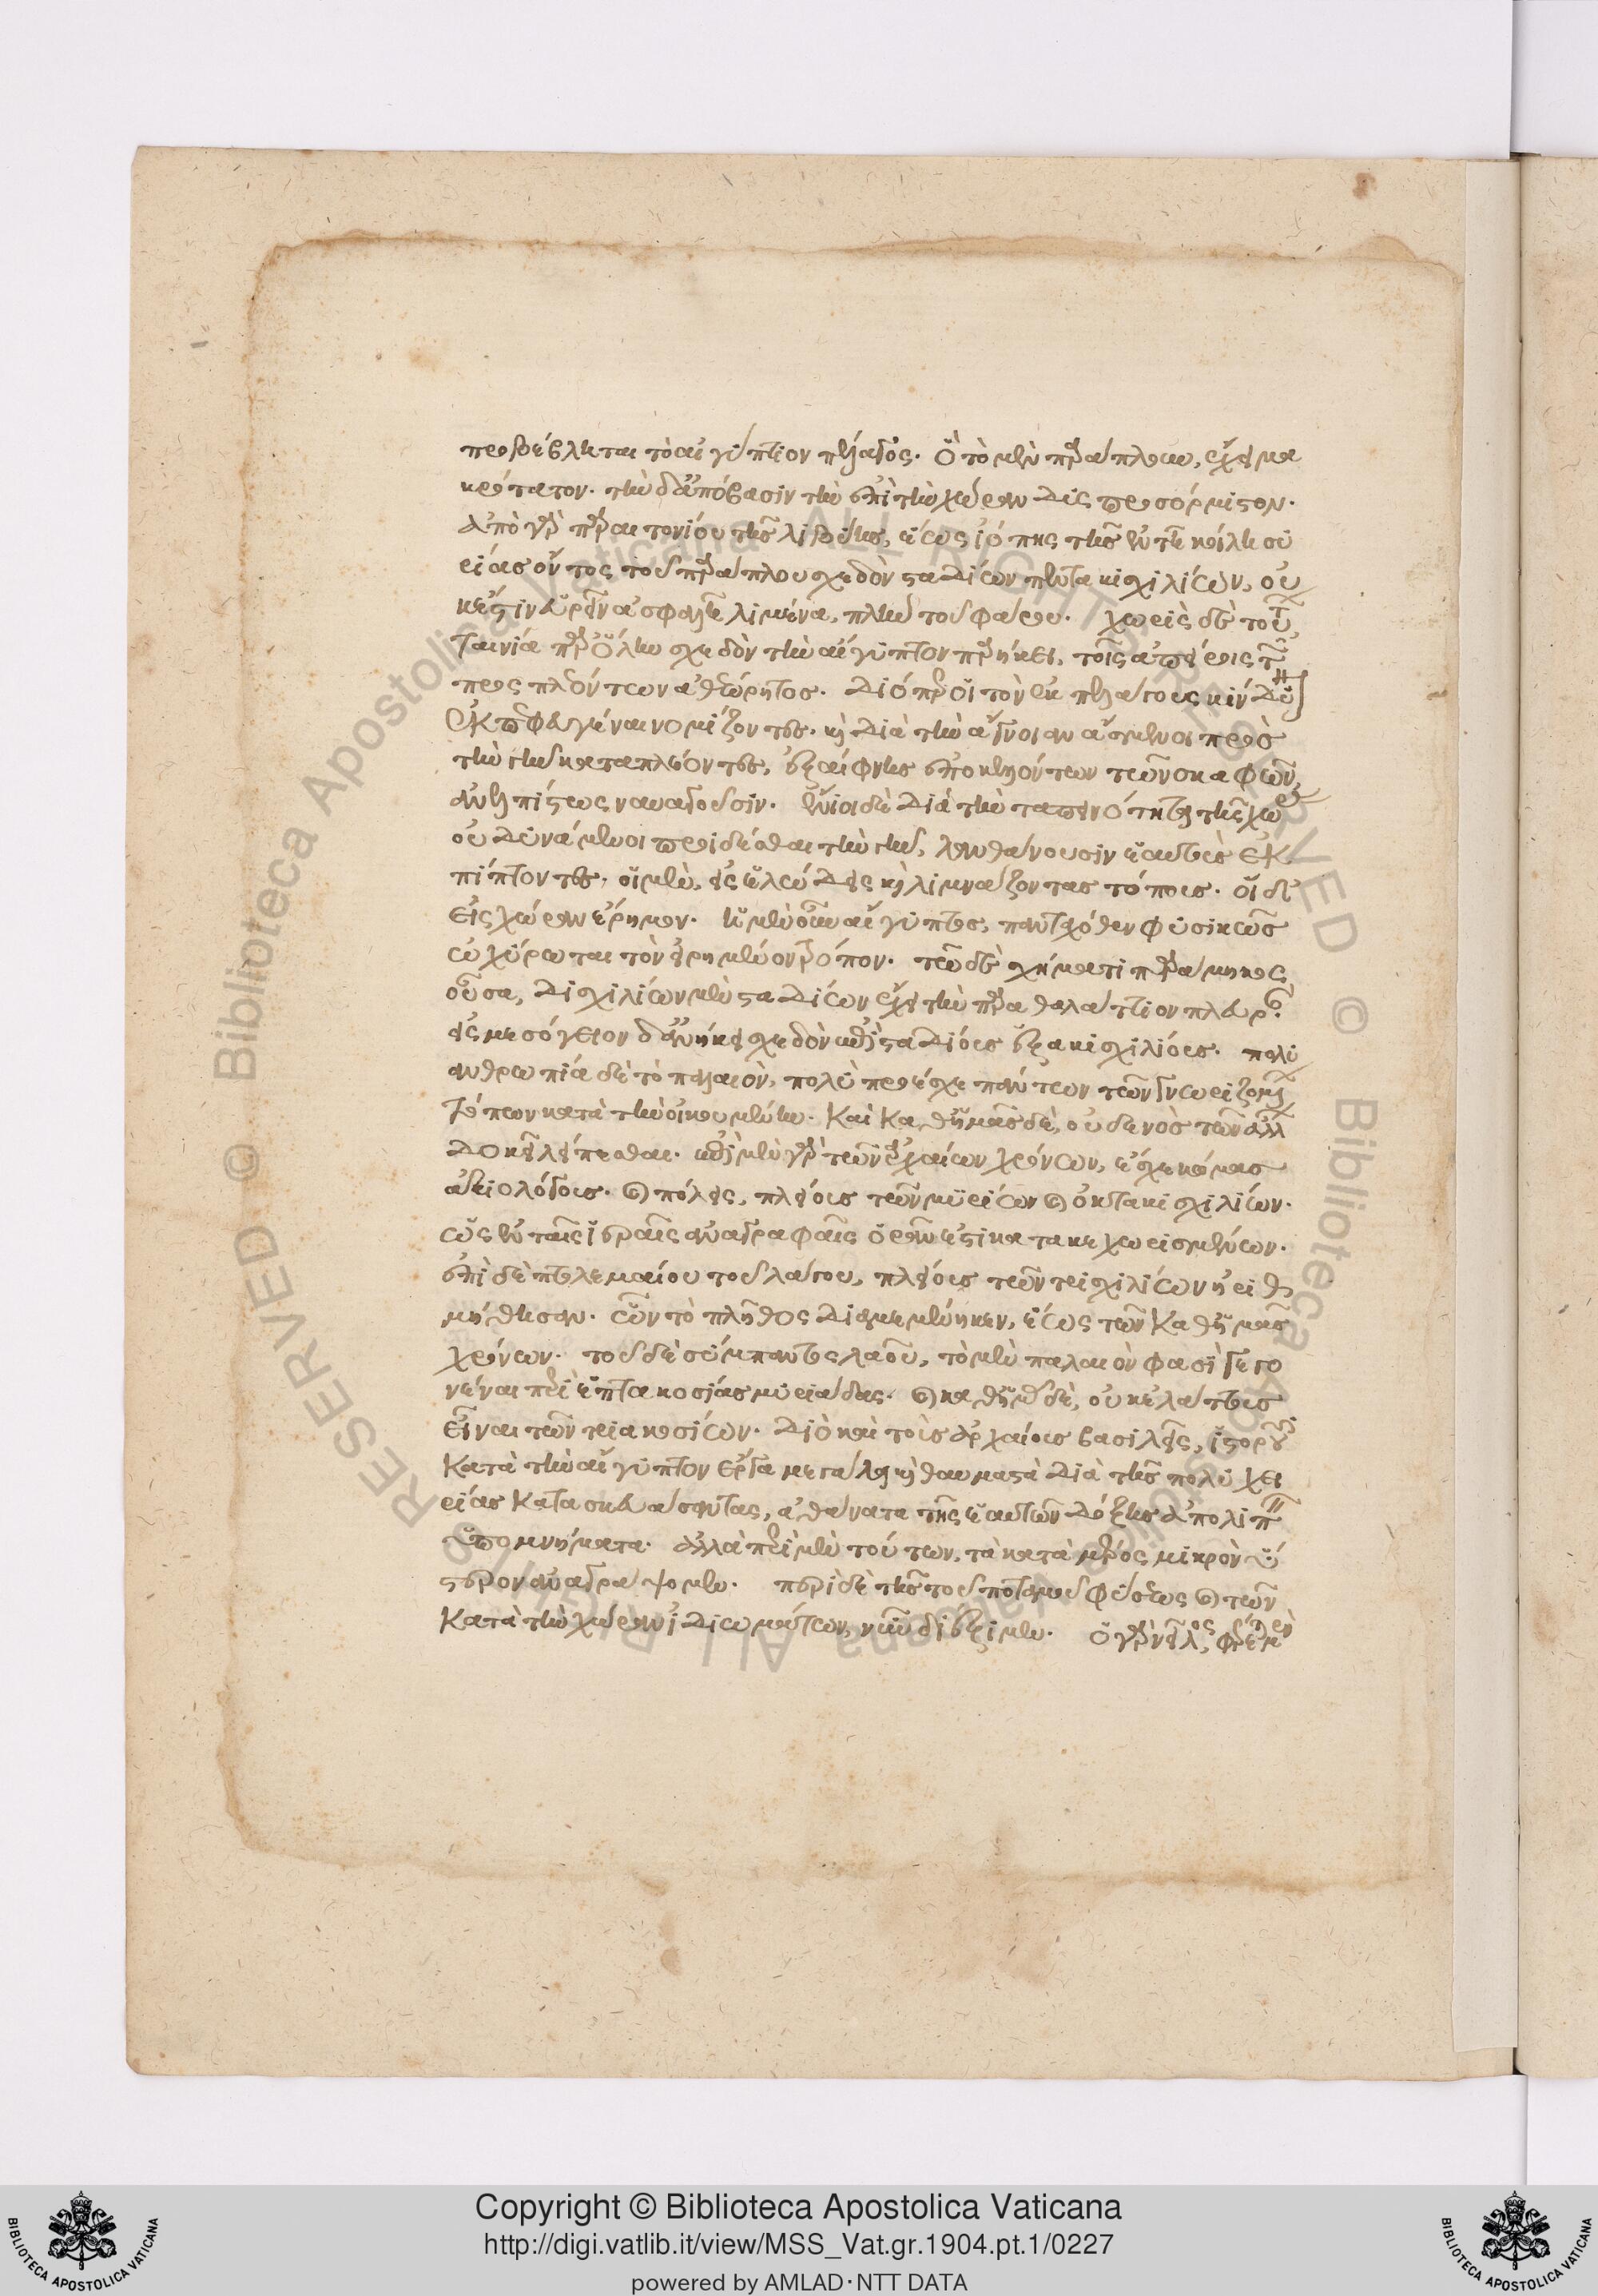 προβέβληται τὸ αἰγύπτιον πέλαγος. ὃ τὸ μὲν παράπλουν, ἔχει μα
κρότατον. τὴν δ' ἀπόβασιν τὴν ἐπὶ τὴν χώραν δυσπροσόρμιστον.
ἀπὸ γὰρ παραιτονίου τῆς λιβύης, ἕως ἰόπης τῆς ἐν τῆ κοίλη συ
ρίας ὄντος τοῦ παράπλου σχεδὸν σταδίων πεντακισχιλίων, οὐ
κ ἔστιν εὑρεῖν ἀσφαλῆ λιμένα, πλὴν τοῦ φάρου. χωρὶς δὲ τούτ
ταινία παρ' ὅλην σχεδὸν τὴν αἴγυπτον παρήκει, τοῖς ἀπείροις τῶν
προσπλεόντων ἀθεώρητος. διόπερ οἱ τὸν ἐκ πελάγους κίνδυν
ἐκπεφευγέναι νομίζοντες. καὶ διὰ τὴν ἄγνοιαν ἄσμενοι πρὸς
τὴν γῆν καταπλέοντες, ἐξαίφνης ἐποκελλόντων τῶν σκαφῶν,
ἀνελπίστως ναυαγοῦσιν. ἔνιοι δὲ διὰ τὴν ταπεινότητα τῆς χώρ
οὐ δυνάμενοι προϊδέσθαι τὴν γῆν, λανθάνουσιν ἑαυτοὺς ἐκ
πίπτοντες, οἱ μὲν, εἰς ἑλώδεις καὶ λιμνάζοντας τόπους. οἱ δ'
εἰς χώραν ἔρημον. ἡ μὲν οὖν αἴγυπτος, πανταχόθεν φυσικῶς
ὠχύρωται τὸν εἰρημένον τρόπον. τῶ δὲ σχήματι παραμήκης
οὖσα, δισχιλίων μὲν σταδίων ἔχει τὴν παραθαλάττιον πλευράν.
εἰς μεσόγειον δ' ἀνήκει σχεδὸν ἐπὶ σταδίους ἑξακισχιλίους. πολυ
ανθρωπία δὲ τὸ παλαιὸν, πολὺ προέσχε πάντων τῶν γνωριζομένων
τόπων κατὰ τὴν οἰκουμένην. καὶ καθ' ἡμᾶς δὲ, οὐδενὸς τῶν ἄλλων
δοκεῖ λείπεσθαι. ἐπὶ μὲν γὰρ τῶν ἀρχαίων χρόνων, ἔσχε κώμας
ἀξιολόγους. καὶ πόλεις, πλείους τῶν μυρίων καὶ ὀκτακισχιλίων.
ὡς ἐν ταῖς ἱεραῖς ἀναγραφαῖς ὁρᾶν ἔστι κατακεχωρισμένων.
ἐπὶ δὲ πτολεμαίου τοῦ λάγου, πλείους τῶν τρισχιλίων ἠριθ
μήθησαν. ὧν τὸ πλῆθος διαμεμένηκεν, ἕως τῶν καθ' ἡμᾶς
χρόνων. τοῦ δὲ σύμπαντος λαοῦ, τὸ μὲν παλαιὸν φασὶ γεγο
νέναι περὶ ἑπτακοσίας μυριάδας. καὶ καθ' ἡμᾶς δὲ, οὐκ ἐλάττους
εἶναι τῶν τριακοσίων. διὸ καὶ τοὺς ἀρχαίους βασιλεῖς, ἱστοροῦσι
κατὰ τὴν αἴγυπτον ἔργα μεγάλα καὶ θαυμαστὰ διὰ τῆς πολυχει
ρίας κατασκευάσαντας, ἀθάνατα τῆς ἑαυτῶν δόξης ἀπολιπεῖν
ὑπομνήματα. ἀλλὰ περὶ μὲν τούτων, τὰ κατὰ μέρος μικρὸν ὕ
στερον ἀναγράψομεν. περὶ δὲ τῆς τοῦ ποταμοῦ φύσεως καὶ τῶν
κατὰ τὴν χώραν ἰδιωμάτων, νῦν διέξιμεν. ὁ γὰρ νεῖλος, φέρεται μὲν
Copyright © Biblioteca Apostolica Vaticana
http://digi.vatlib.it/view/MSS_Vat.gr.1904.pt.1/0227
powered by AMLAD·NTT DATA